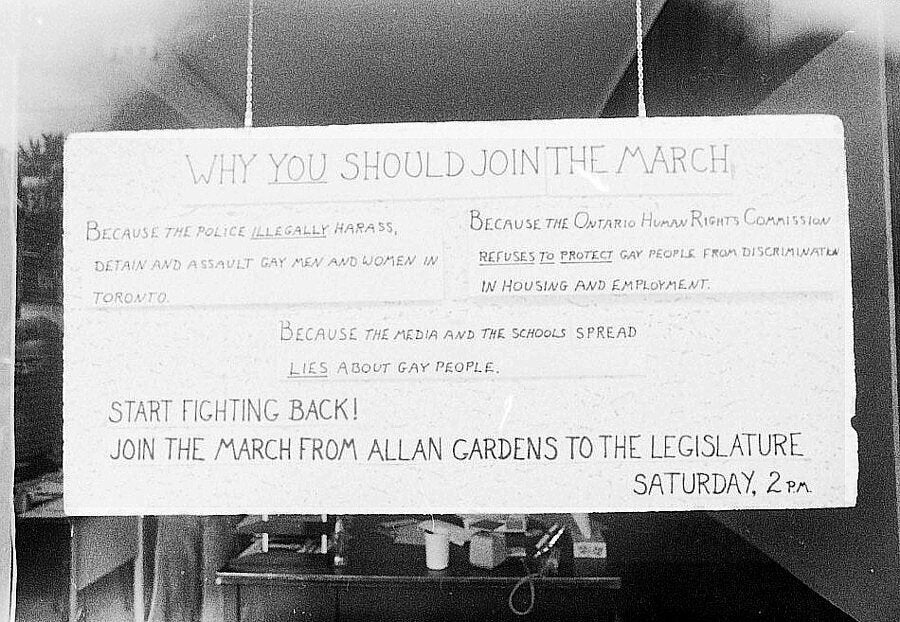 WHY YOU SHOULD JOIN THE MARCH
BECAUSE THE POLICE ILLEGALLY HARASS,
DETAIN AND ASSAULT GAY MEN AND WOMEN IN
TORONTO.
BECAUSE THE ONTARIO HUMAN RIGHTS COMMISSION
REFUSES TO PROTECT GAY PEOPLE FROM DISCRIMINATION
IN HOUSING AND EMPLOYMENT.
BECAUSE THE MEDIA AND THE SCHOOLS SPREAD
LIES ABOUT GAY PEOPLE.
START FIGHTING BACK!
JOIN THE MARCH FROM ALLAN GARDENS TO THE LEGISLATURE
SATURDAY, 2 P.M.